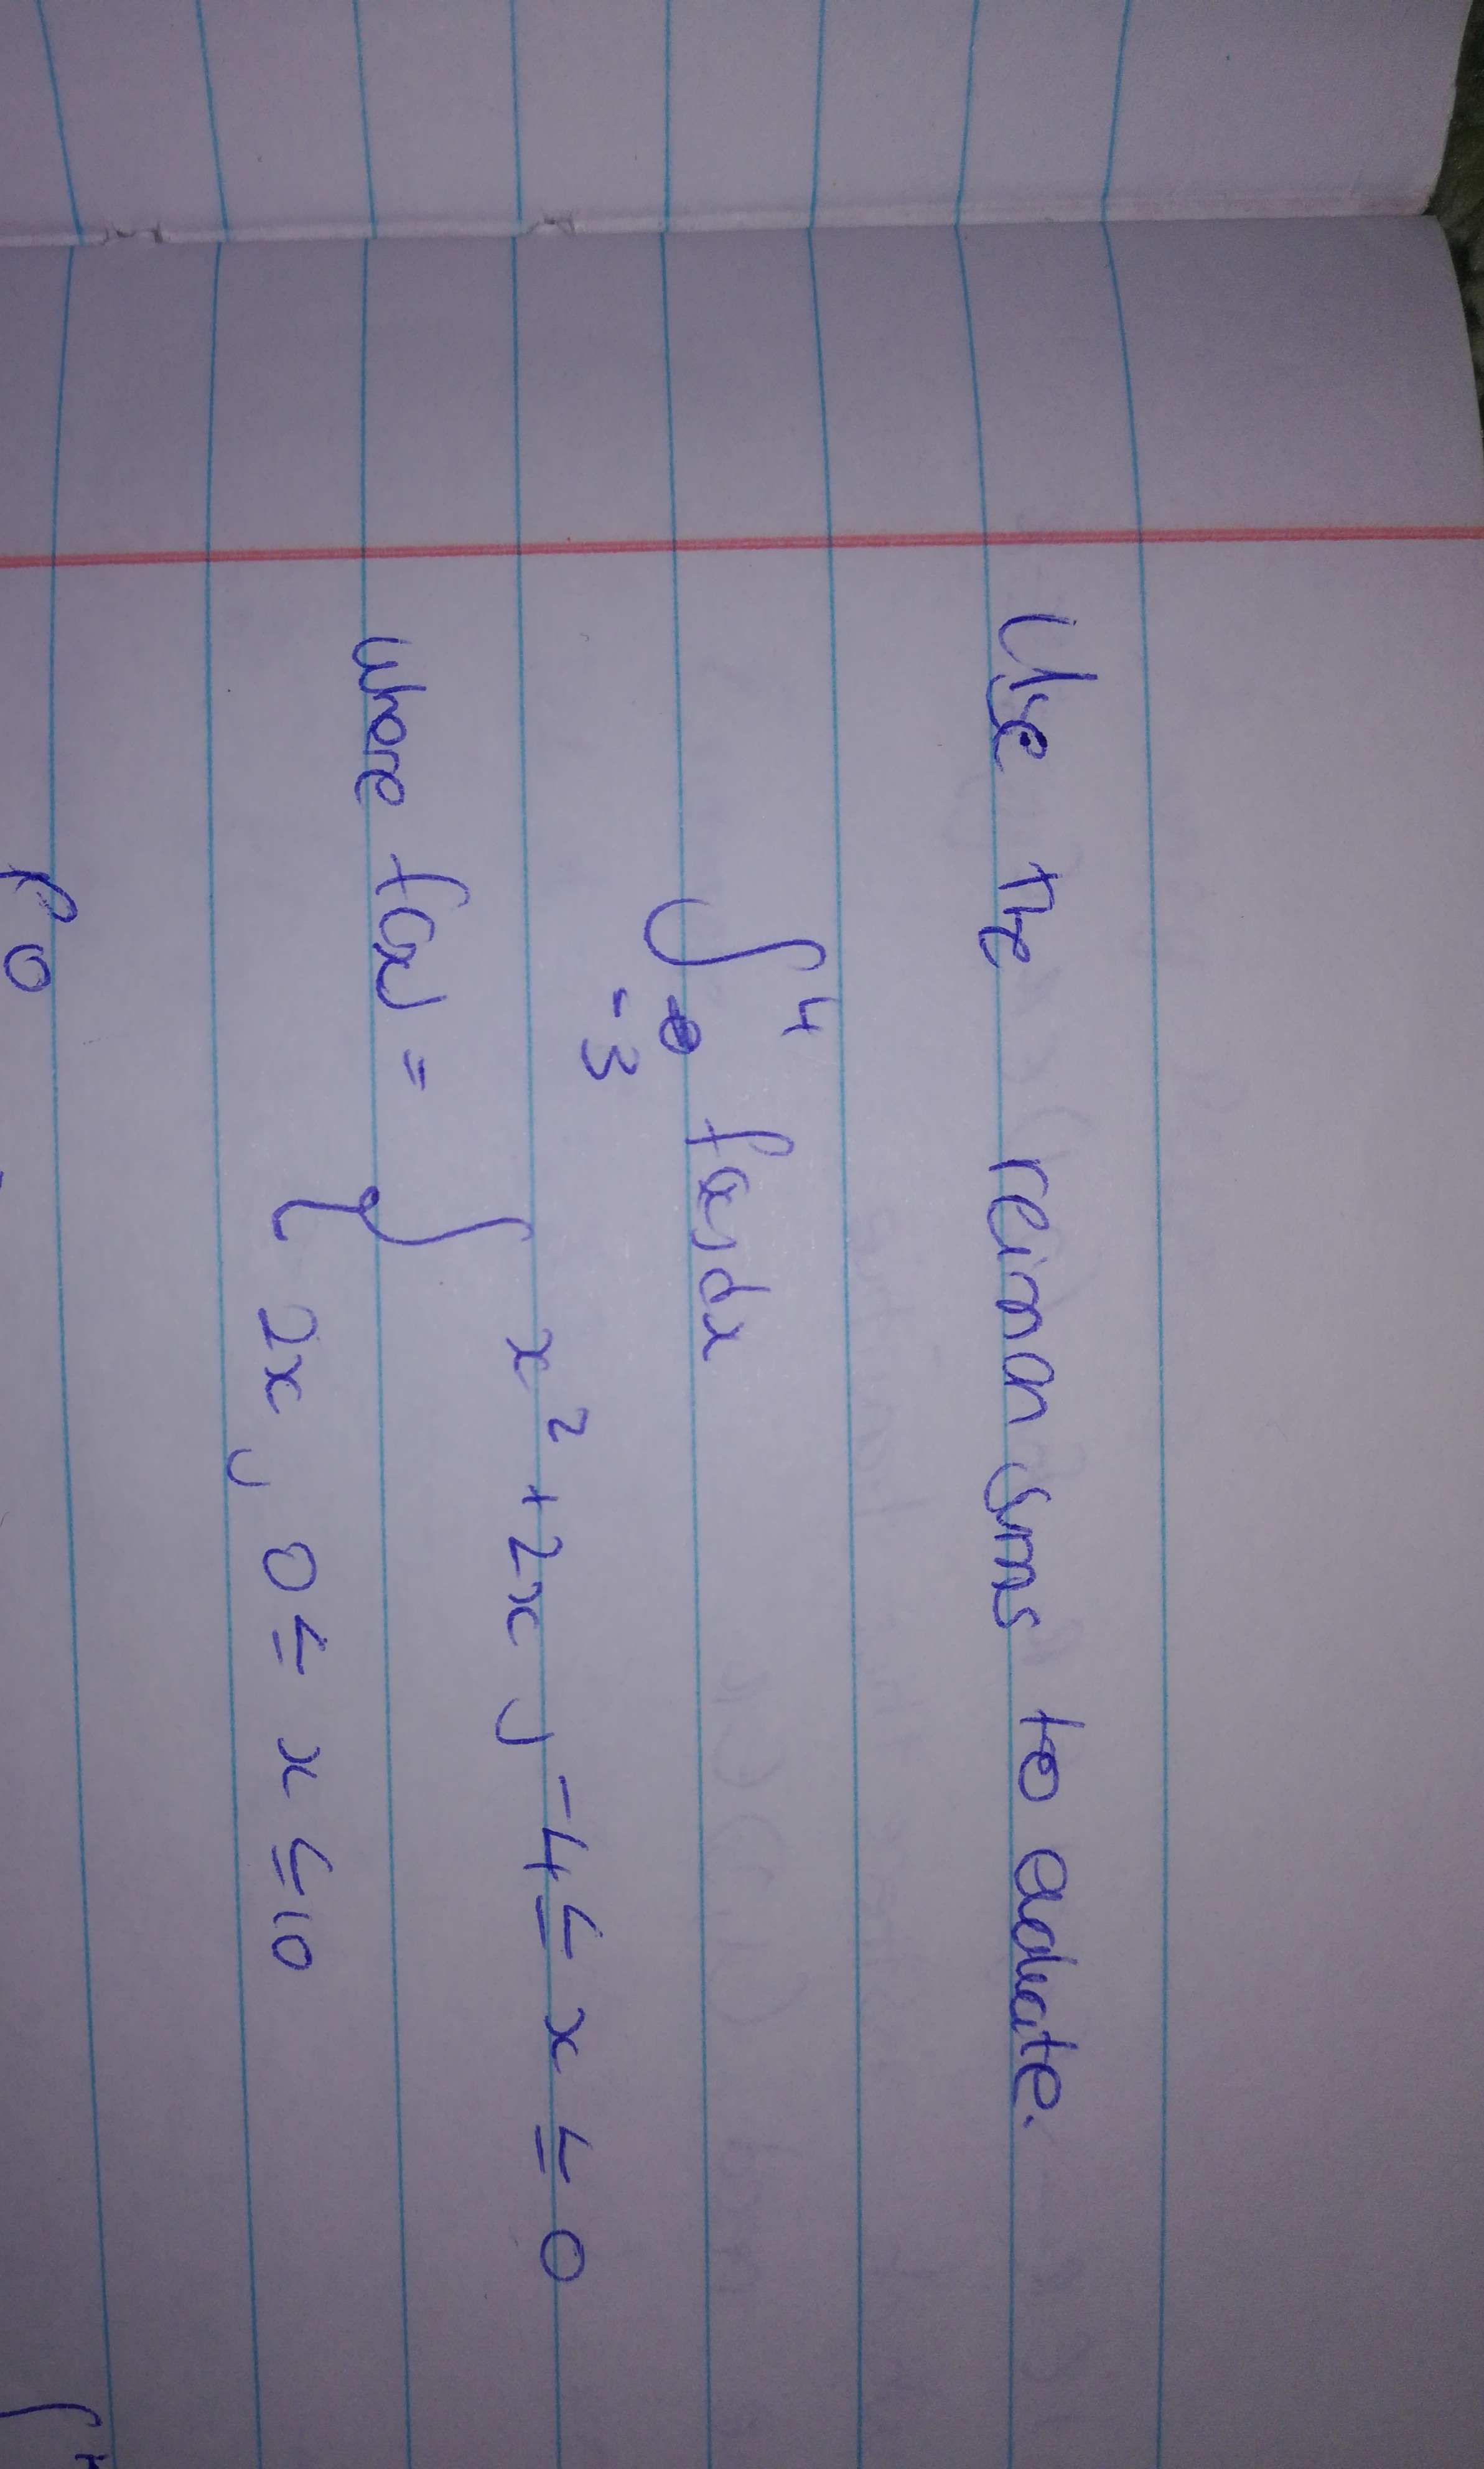 Use the reiman sums to evaluate.
∫₋₃⁴ f(x)dx
where f(x) = { x² + 2x, -4 ≤ x ≤ 0
2x, 0 ≤ x ≤ 10
∫ 0 ∫